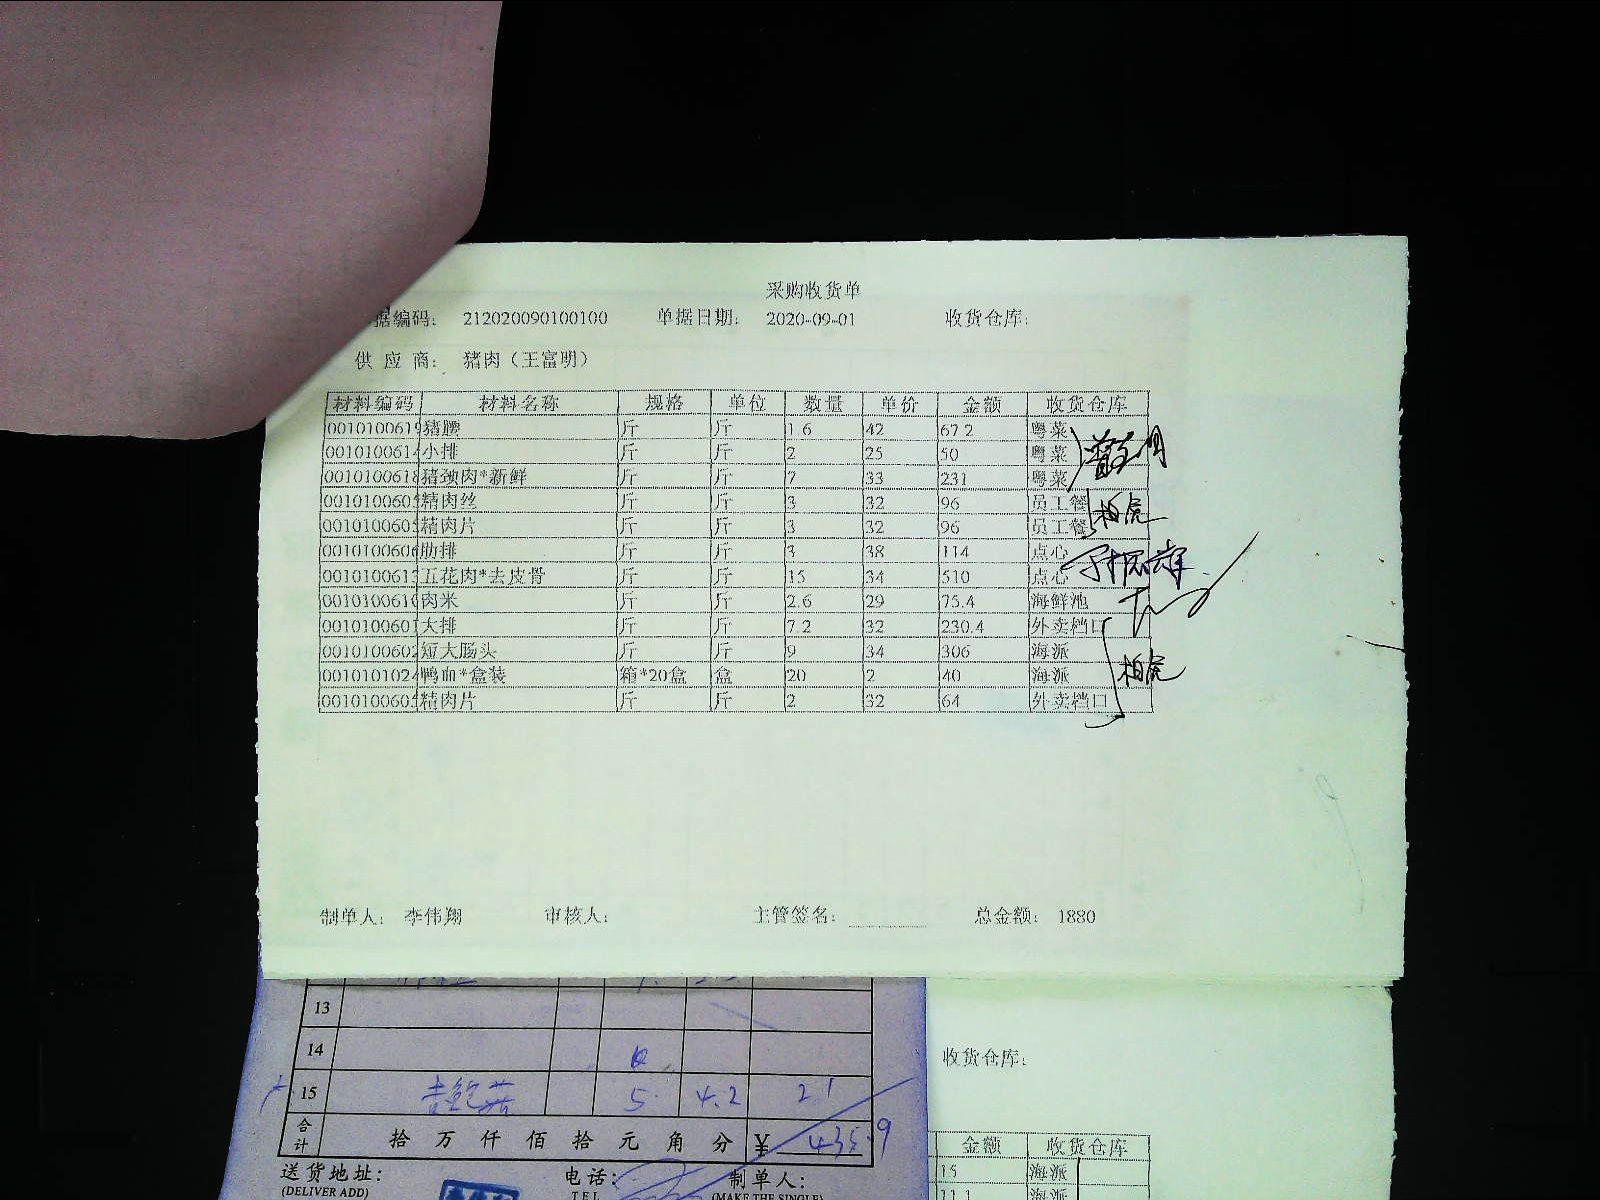 采购收货单
据编码: 212020090100100 单据日期: 2020-09-01 收货仓库:
供应商: 猪肉（王富明）
材料编码 材料名称 规格 单位 数量 单价 金额 收货仓库
0010100619 猪腰 斤 斤 1.6 42 67.2 粤菜
001010061 小排 斤 斤 2 25 50 粤菜
0010100618 猪颈肉*新鲜 斤 斤 7 33 231 粤菜
001010060 精肉丝 斤 斤 3 32 96 员工餐
001010060 精肉片 斤 斤 3 32 96 员工餐 柏虎
0010100606 肋排 斤 斤 3 38 114 点心
001010061 五花肉*去皮骨 斤 斤 15 34 510 点心
0010100610 肉米 斤 斤 2.6 29 75.4 海鲜池
001010060 大排 斤 斤 7.2 32 230.4 外卖档口
0010100602 短大肠头 斤 斤 9 34 306 海派
001010102 鸭血*盒装 箱*20盒 盒 20 2 40 海派 柏虎
001010060 精肉片 斤 斤 2 32 64 外卖档口
制单人: 李伟翔 审核人: 主管签名: 总金额: 1880
13
14
15 杏鲍菇 5 4.2 21
合计 拾万仟佰拾元角分 ¥ 435.9
送货地址: 电话: 制单人:
(DELIVER ADD) TEL (MAKE THE SINGLE)
收货仓库:
金额 收货仓库
15 海派
11.1 海派